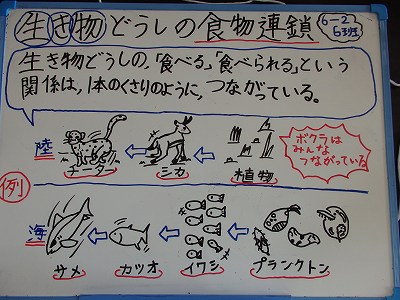 生き物どうしの食物連鎖
6-2
6班
生き物どうしの、「食べる」「食べられる」という
関係は、1本のくさりのように、つながっている。
陸
チーター
シカ
植物
ボクラは
みんな
つながっている
例
海
サメ
カツオ
イワシ
プランクトン